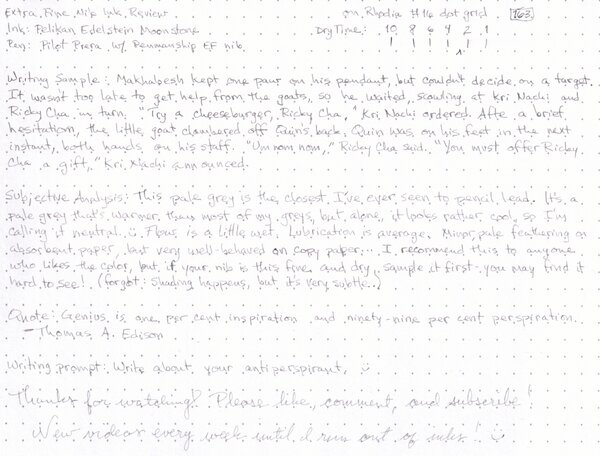 Extra Fine Nib Ink Review on Rhodia #16 dot grid 163
Ink: Pelikan Edelstein Moonstone Dry Time: 10 8 6 4 2 1
Pen: Pilot Prera w/ Penmanship EF nib
Writing Sample: Makhabesh kept one paw on his pendant, but couldn't decide on a target.
It wasn't too late to get help from the goats, so he waited, scowling at Kri Nachi and
Ricky Cha in turn. "Try a cheeseburger, Ricky Cha," Kri Nachi ordered. After a brief
hesitation, the little goat clambered off Quin's back. Quin was on his feet in the next
instant, both hands on his staff. "Um nom nom," Ricky Cha said. "You must offer Ricky
Cha a gift," Kri Nachi announced.
Subjective Analysis: This pale grey is the closest I've ever seen to pencil lead. It's a
pale grey that's warmer than most of my greys, but alone, it looks rather cool, so I'm
calling it neutral. Flow is a little wet, lubrication is average. Minor pale feathering on
absorbent paper, but very well-behaved on copy paper... I recommend this to anyone
who likes the color, but if your nib is this fine and dry, sample it first. You may find it
hard to see! (forgot: shading happens, but it's very subtle.)
Quote: Genius is one per cent inspiration and ninety-nine per cent perspiration.
- Thomas A. Edison
Writing prompt: Write about your antiperspirant.
Thanks for watching! Please like, comment, and subscribe!
New videos every week until I run out of inks!